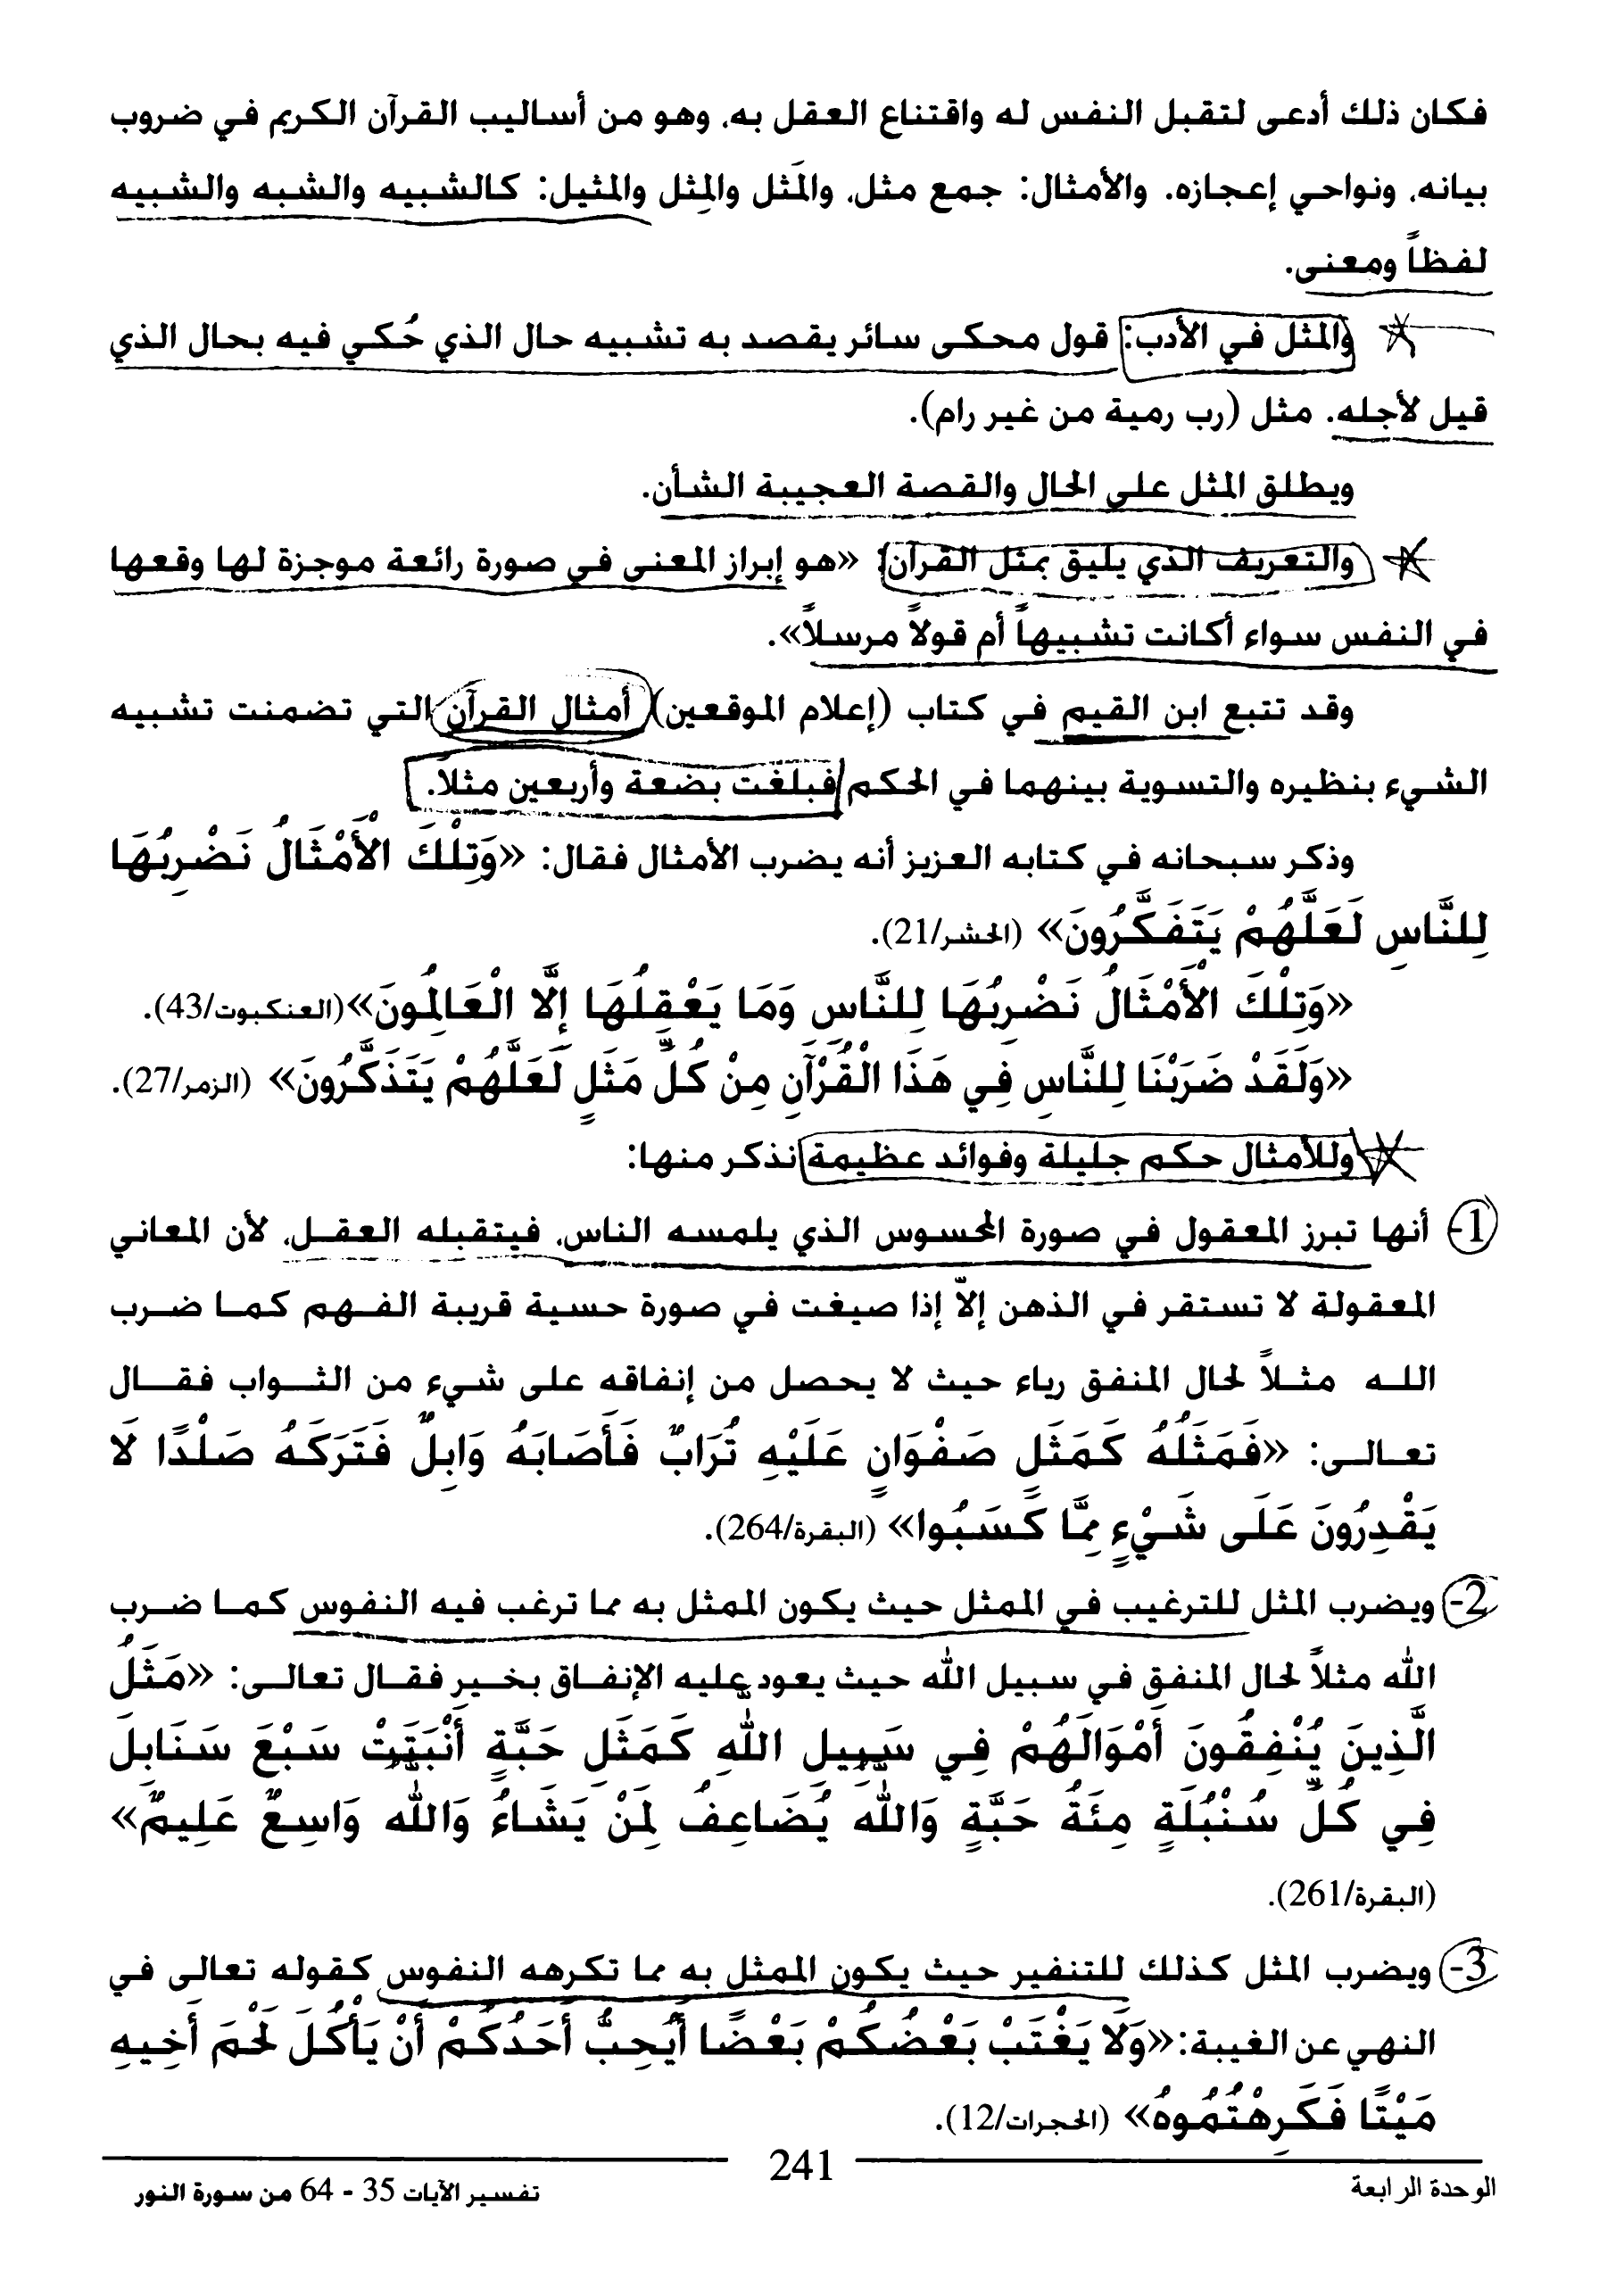 فكان ذلك أدعى لتقبل النفس له واقتناع العقل به، وهو من أساليب القرآن الكريم في ضروب
بيانه، ونواحي إعجازه. والأمثال: جمع مثل، والمَثل والمِثل والمثيل: كالشبيه والشبه والشبيه
لفظاً ومعنى.
والمثل في الأدب: قول محكى سائر يقصد به تشبيه حال الذي حُكي فيه بحال الذي
قيل لأجله. مثل (رب رمية من غير رام).
ويطلق المثل على الحال والقصة العجيبة الشأن.
والتعريف الذي يليق بمثل القرآن: «هو إبراز المعنى في صورة رائعة موجزة لها وقعها
في النفس سواء أكانت تشبيهاً أم قولاً مرسلاً».
وقد تتبع ابن القيم في كتاب (إعلام الموقعين) أمثال القرآن التي تضمنت تشبيه
الشيء بنظيره والتسوية بينهما في الحكم فبلغت بضعة وأربعين مثلاً.
وذكر سبحانه في كتابه العزيز أنه يضرب الأمثال فقال: «وَتِلْكَ الْأَمْثَالُ نَضْرِبُهَا
لِلنَّاسِ لَعَلَّهُمْ يَتَفَكَّرُونَ» (الحشر/21).
«وَتِلْكَ الْأَمْثَالُ نَضْرِبُهَا لِلنَّاسِ وَمَا يَعْقِلُهَا إِلَّا الْعَالِمُونَ»(العنكبوت/43).
«وَلَقَدْ ضَرَبْنَا لِلنَّاسِ فِي هَذَا الْقُرْآنِ مِنْ كُلِّ مَثَلٍ لَعَلَّهُمْ يَتَذَكَّرُونَ» (الزمر/27).
وللأمثال حكم جليلة وفوائد عظيمة نذكر منها:
1- أنها تبرز المعقول في صورة المحسوس الذي يلمسه الناس، فيتقبله العقل، لأن المعاني
المعقولة لا تستقر في الذهن إلاّ إذا صيغت في صورة حسية قريبة الفهم كما ضرب
الله مثلاً لحال المنفق رياء حيث لا يحصل من إنفاقه على شيء من الثواب فقال
تعالى: «فَمَثَلُهُ كَمَثَلِ صَفْوَانٍ عَلَيْهِ تُرَابٌ فَأَصَابَهُ وَابِلٌ فَتَرَكَهُ صَلْدًا لَا
يَقْدِرُونَ عَلَى شَيْءٍ مِمَّا كَسَبُوا» (البقرة/264).
2- ويضرب المثل للترغيب في الممثل حيث يكون الممثل به مما ترغب فيه النفوس كما ضرب
الله مثلاً لحال المنفق في سبيل الله حيث يعود عليه الإنفاق بخير فقال تعالى: «مَثَلُ
الَّذِينَ يُنْفِقُونَ أَمْوَالَهُمْ فِي سَبِيلِ اللهِ كَمَثَلِ حَبَّةٍ أَنْبَتَتْ سَبْعَ سَنَابِلَ
فِي كُلِّ سُنْبُلَةٍ مِئَةُ حَبَّةٍ وَاللهُ يُضَاعِفُ لِمَنْ يَشَاءُ وَاللهُ وَاسِعٌ عَلِيمٌ»
(البقرة/261).
3- ويضرب المثل كذلك للتنفير حيث يكون الممثل به مما تكرهه النفوس كقوله تعالى في
النهي عن الغيبة:«وَلَا يَغْتَبْ بَعْضُكُمْ بَعْضًا أَيُحِبُّ أَحَدُكُمْ أَنْ يَأْكُلَ لَحْمَ أَخِيهِ
مَيْتًا فَكَرِهْتُمُوهُ» (الحجرات/12).
الوحدة الرابعة
241
تفسير الآيات 35 - 64 من سورة النور